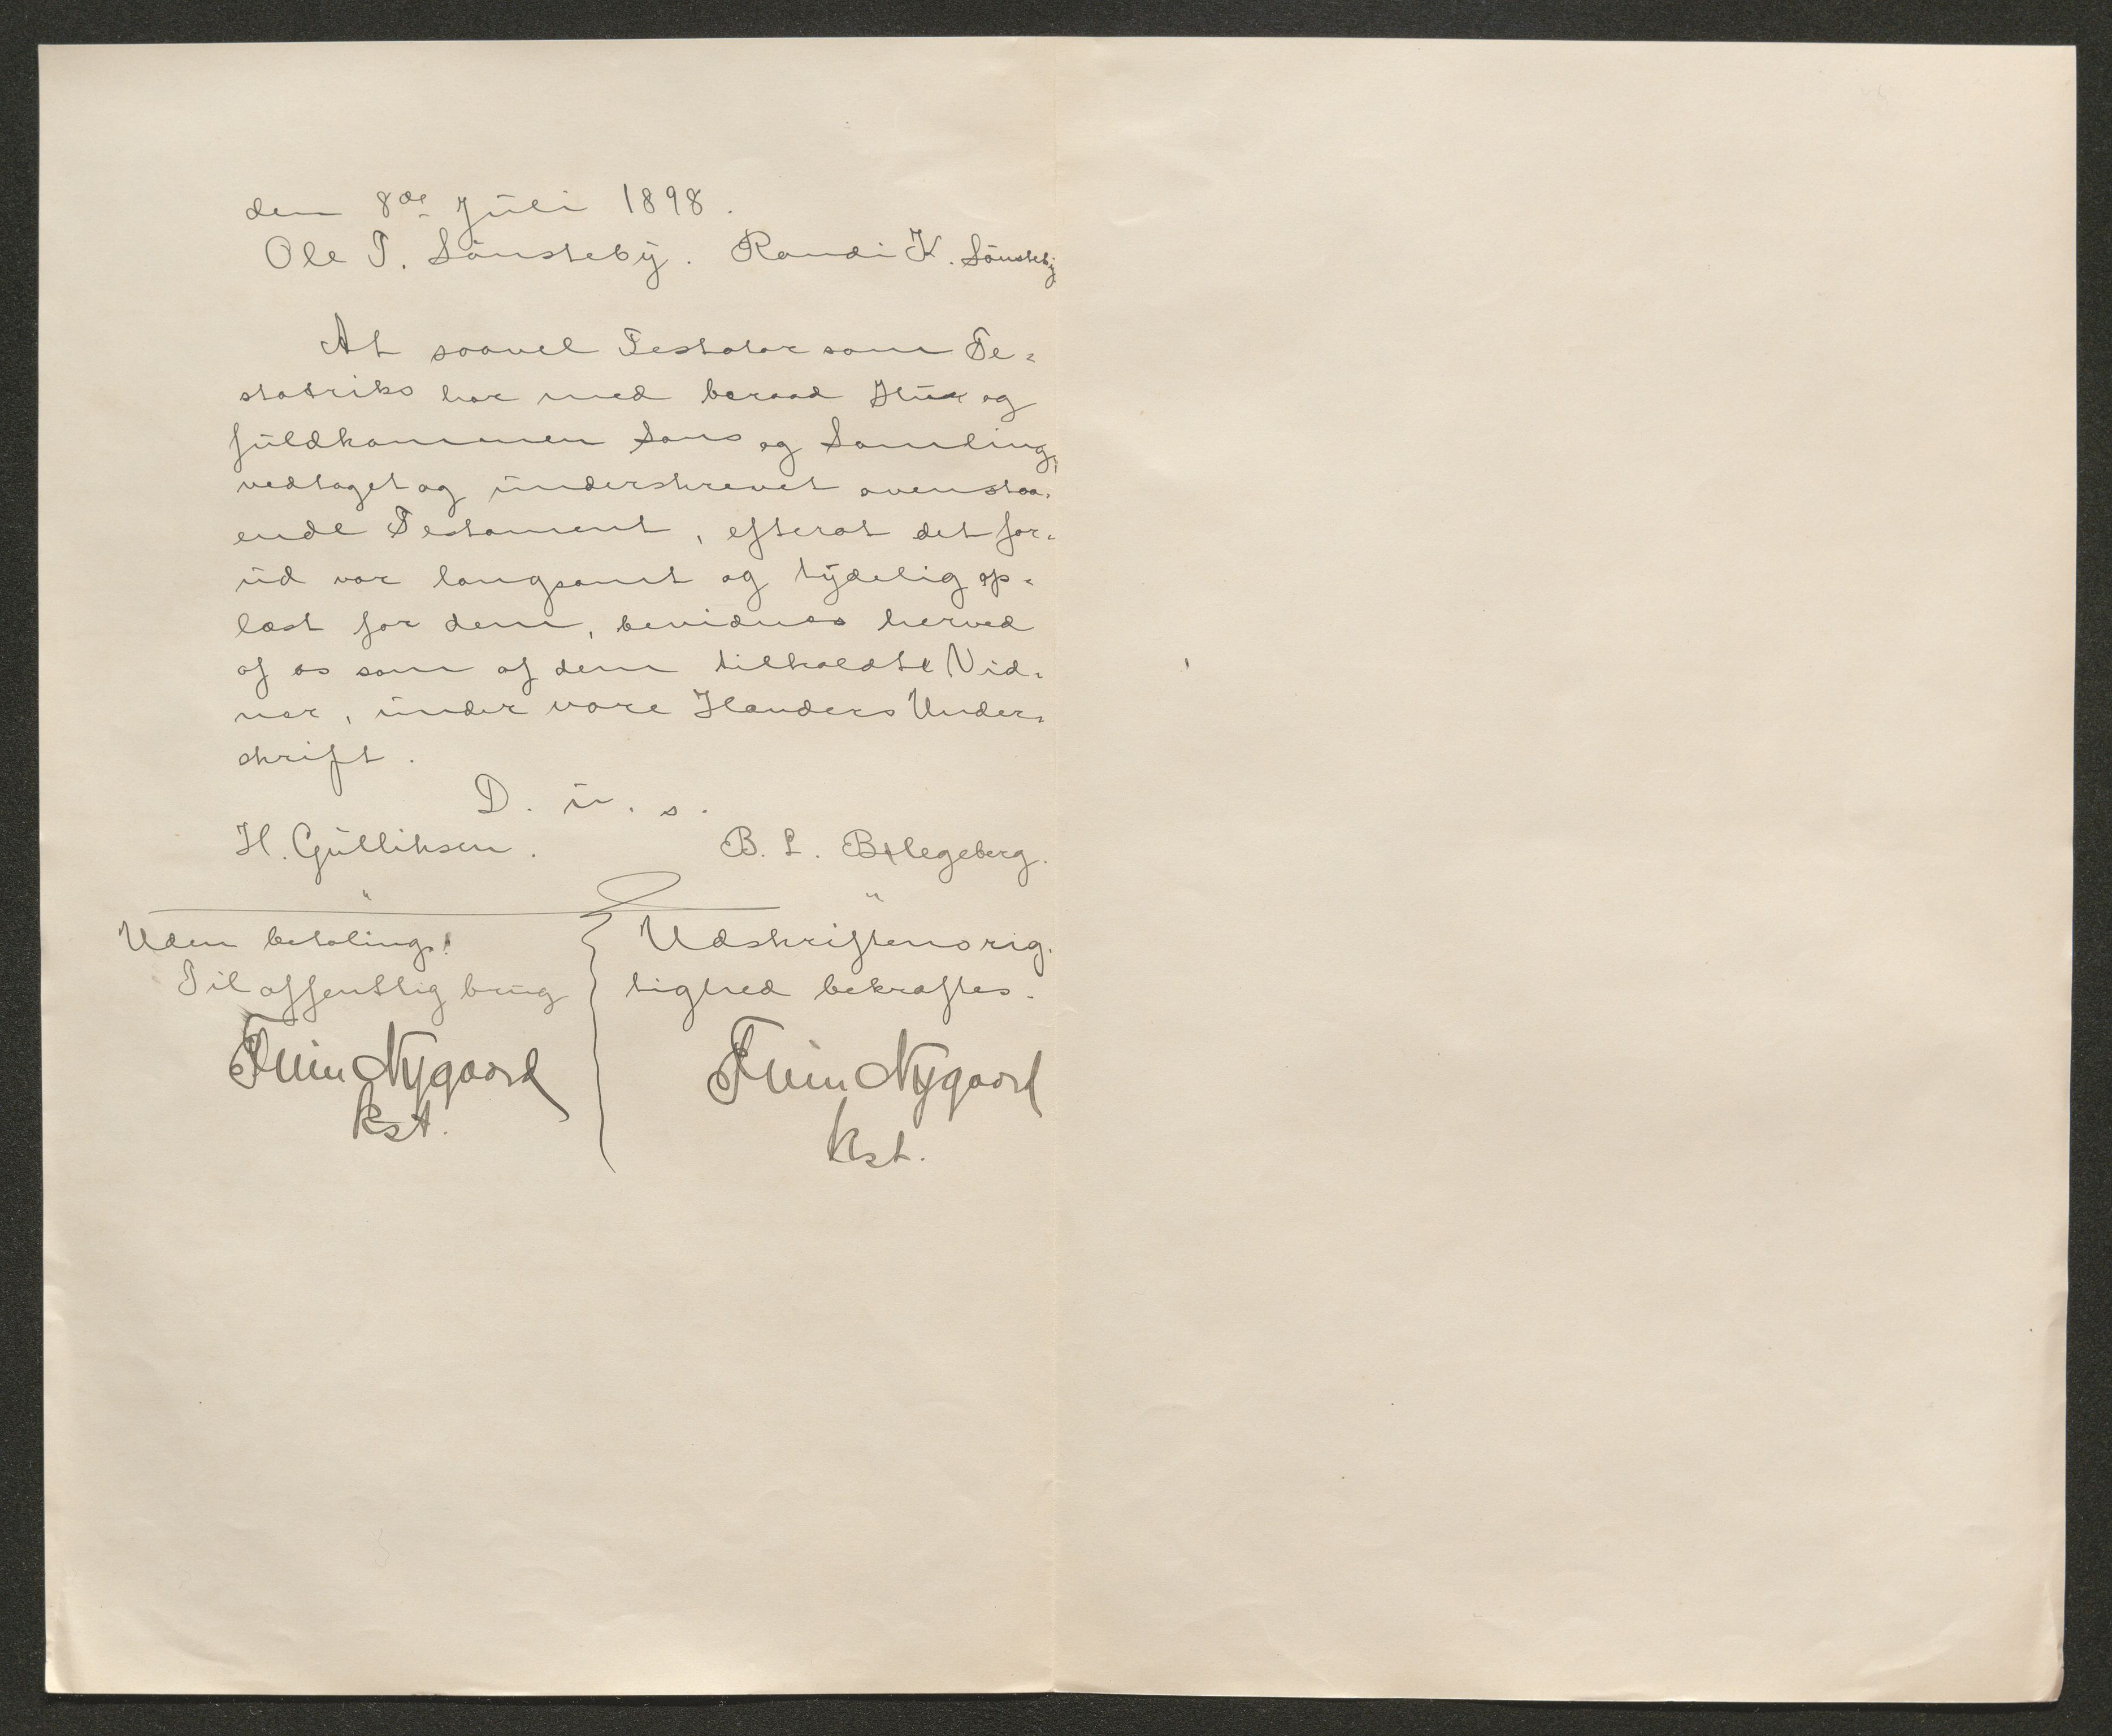 den 8de Juli 1898.
Ole T. Sönsteby. Randi K. Sönsteby
At saavel Testator som Te-
statriks har med beraad Hu og
fuldkommen Sans og Samling,
vedtaget og underskrevet ovenstaa-
ende Testament, efterat det for-
ud var langsomt og tydelig op-
læst for dem, bevidnes herved
af os som af dem tilkaldte Vid-
ner, under vore Hænders Under-
skrift.
D. u. s.
H. Gulliksen. B. L.
Uden betaling!
Til offentlig brug
Nygaard
kst.
Udskriftens rig-
tighed bekræftes.
Nygaard
kst.